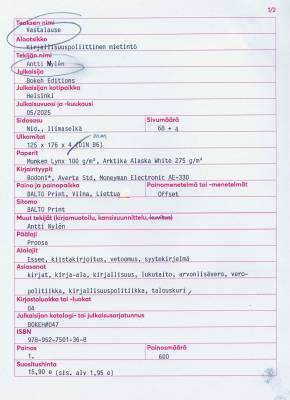 1/2
Teoksen nimi
Vastalause
Alaotsikko
Kirjallisuuspoliittinen mietintö
Tekijän nimi
Antti Nylén
Julkaisija
Bokeh Editions
Julkaisijan kotipaikka
Helsinki
Julkaisuvuosi ja -kuukausi
05/2025
Sidosasu Sivumäärä
Nid., liimaselkä 68 + 4
Ulkomitat
125 x 176 x 4 (DIN B6) mm
Paperit
Munken Lynx 100 g/m², Arktika Alaska White 275 g/m²
Kirjaintyypit
Bodoni*, Averta Std, Moneyman Electronic AE-330
Paino ja painopaikka Painomenetelmä tai -menetelmät
BALTO Print, Vilna, Liettua Offset
Sitomo
BALTO Print
Muut tekijät (kirjamuotoilu, kansisuunnittelu, kuvitus)
Antti Nylén
Päälaji
Proosa
Alalajit
Essee, kiistakirjoitus, vetoomus, syytekirjelmä
Asiasanat
kirjat, kirja-ala, kirjallisuus, lukutaito, arvonlisävero, vero-
politiikka, kirjallisuuspolitiikka, talouskuri
Kirjastoluokka tai -luokat
04
Julkaisijan katalogi- tai julkaisusarjatunnus
BOKEH#047
ISBN
978-952-7501-36-8
Painos Painosmäärä
1. 600
Suositushinta
15,90 e (sis. alv 1,95 e)